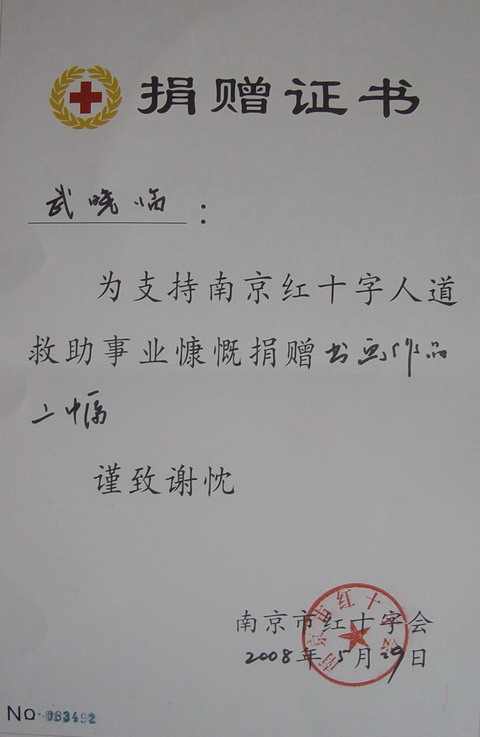 捐赠证书
武晓临：
为支持南京红十字人道
救助事业慷慨捐赠书画作品
二幅
谨致谢忱
南京市红十字会
南京市红十字会
2008年5月29日
No.083492